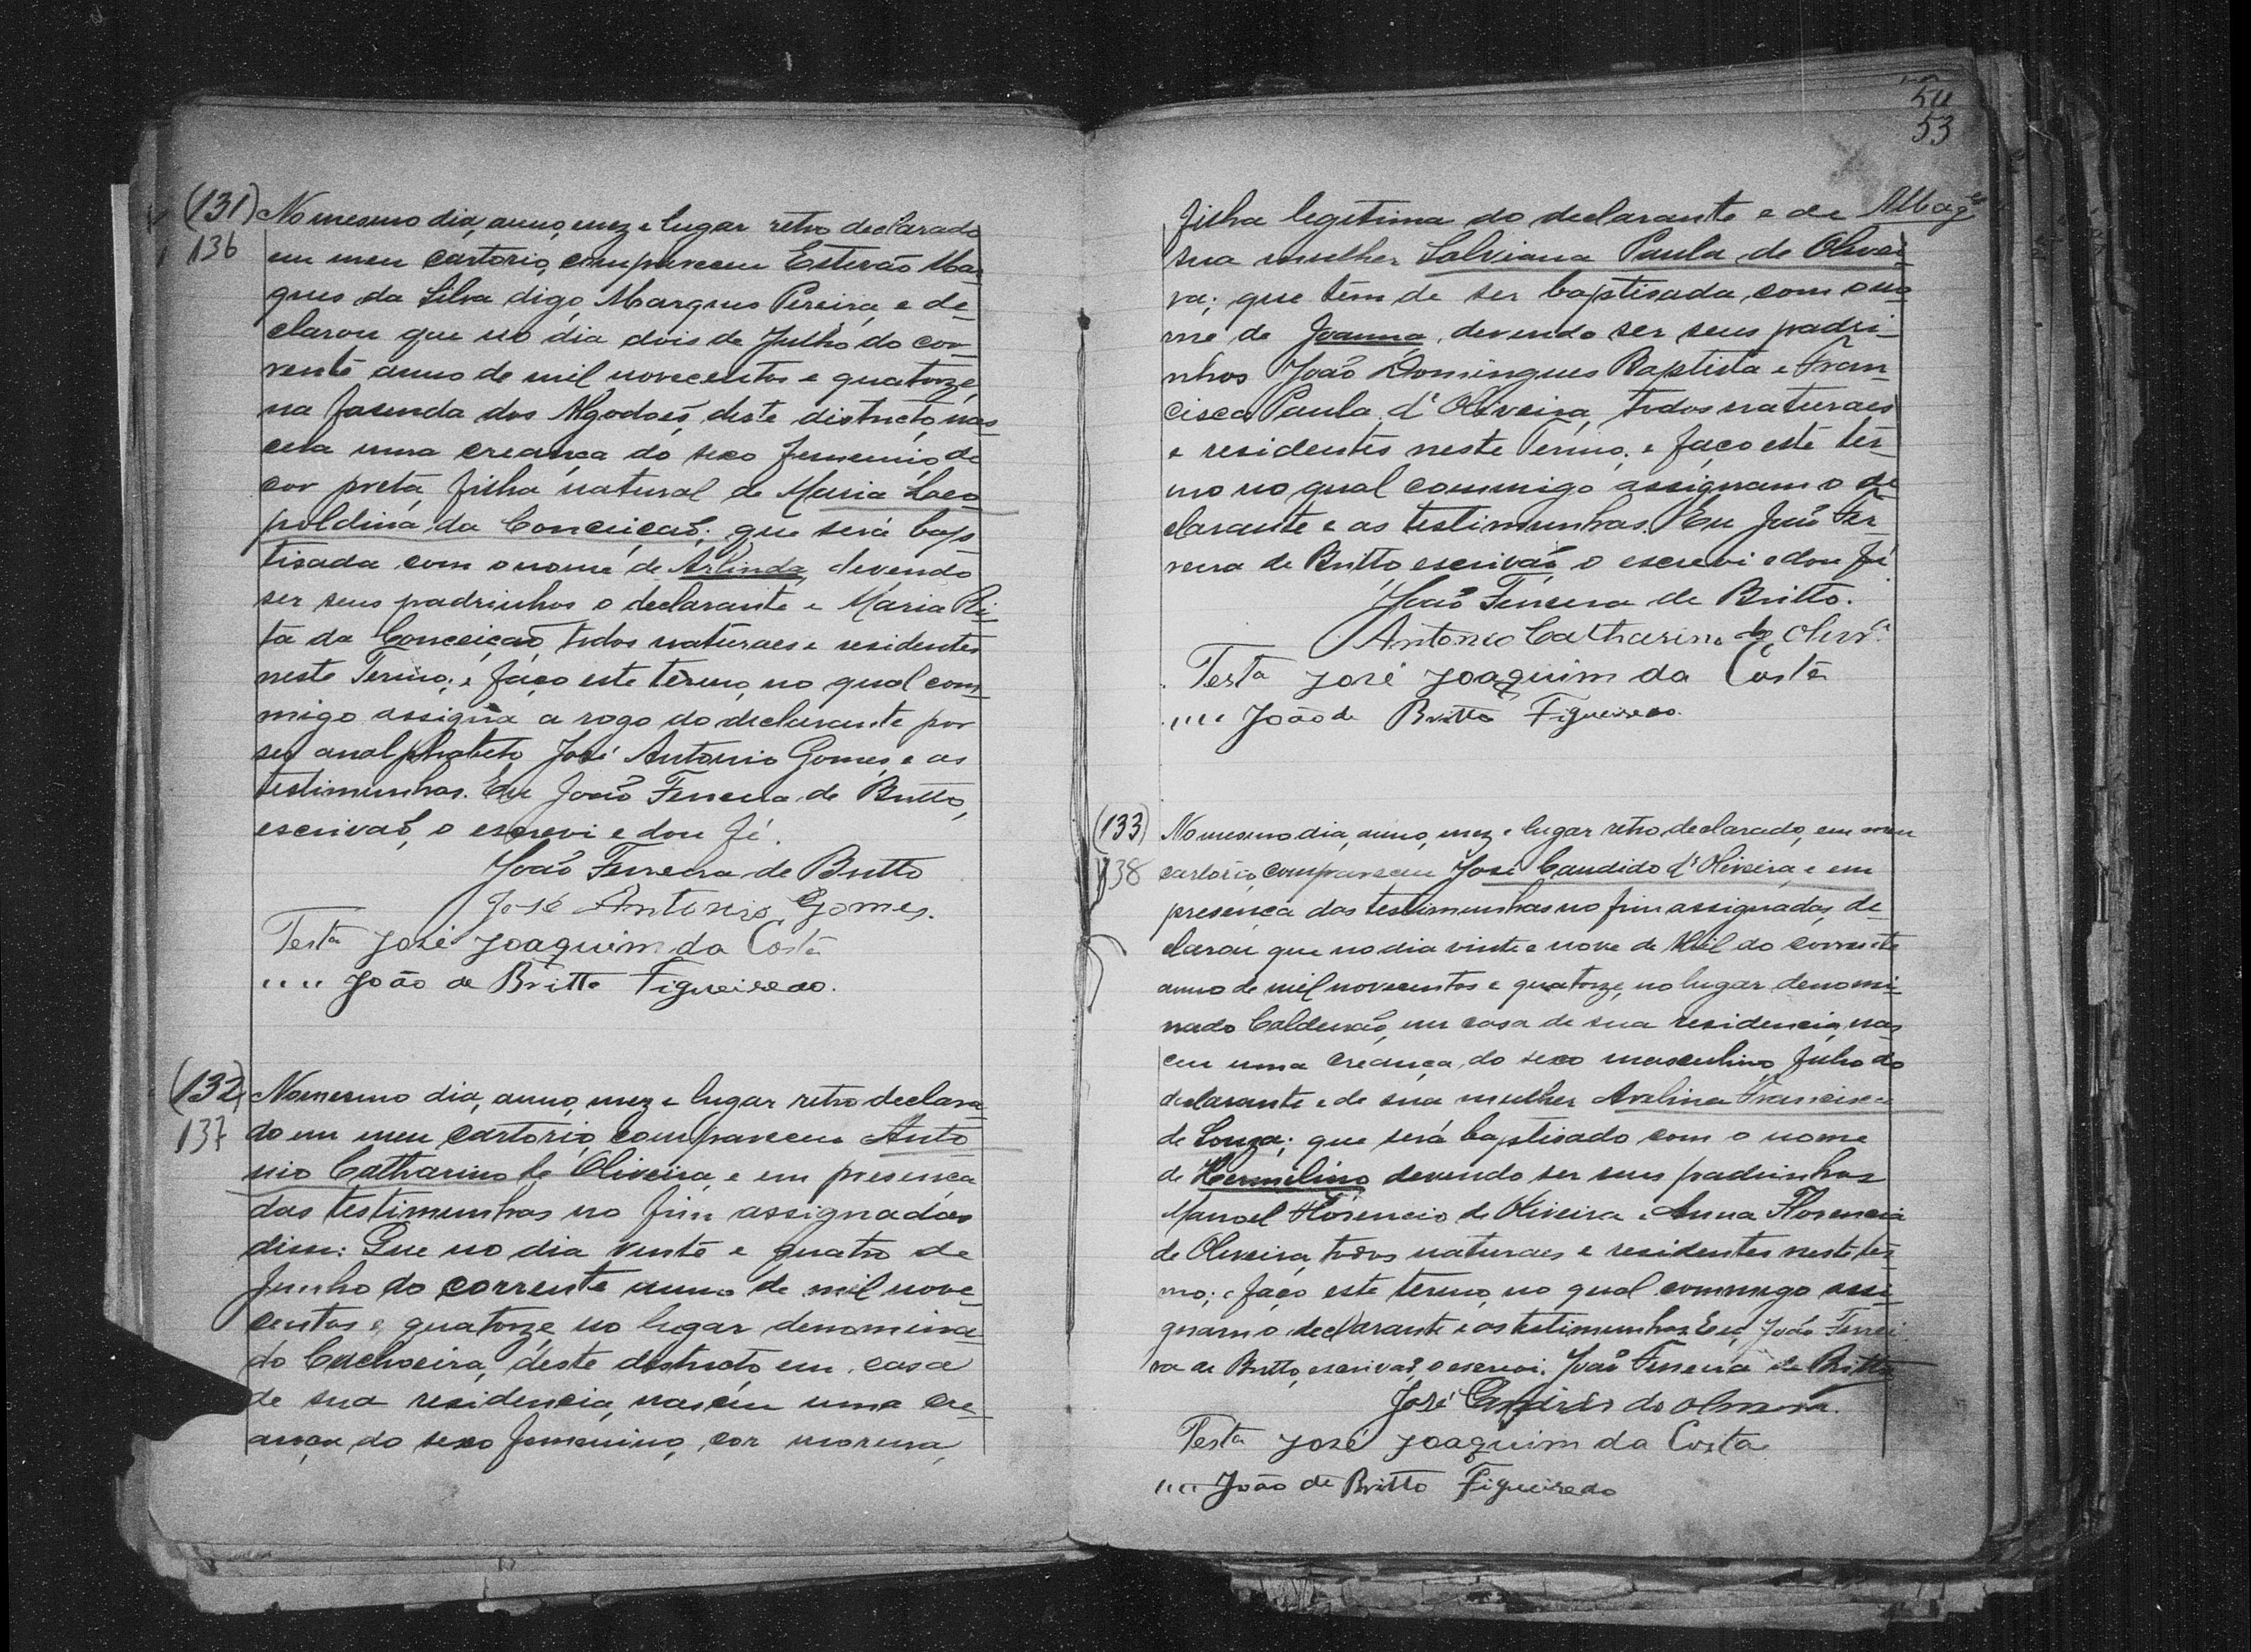 (131) No mesmo dia, anno, mez e lugar retro declarado
136 em meu cartorio, compareceu Estevão Mar
ques da Silva digo, Marques Pereira, e de-
clarou que no dia dois de Julho do cor-
rente anno de mil novecentos e quatorze,
na fasenda dos Algodoes, deste districto, nas
ceu uma creança do sexo femenino, de
cor preta, filha natural de Maria Leo
poldina da Conceicaõ; que será bap
tisada com o nome de Arlinda, devendo
ser seus padrinhos o declarante e Maria Ri-
ta da Conceiçaõ, todos naturaes e residentes
neste Termo; e faço este termo, no qual com-
migo assigna a rogo do declarante por
ser analphabeto, José Antonio Gomes e as
testimunhas. Eu João Ferreira de Britto,
escrivaõ, o escrevi e dou fé.
João Ferreira de Britto
José Antonio Gomes.
Testa José Joaquim da Costa
" " João de Britto Figueiredo.
(132) No mesmo dia, anno, mez e lugar retro declara
137 do em meu cartorio, compareceu Anto
nio Catharino de Oliveira, e em presença
das testimunhas no fim assignadas
disse: Que no dia vinte e quatro de
Junho do corrente anno de mil nove-
centos e quatorze, no lugar denomina-
do Cachoeira, deste districto, em casa
de sua residencia, nasceu uma cre-
ança do sexo femenino, cor morena,
54
53
filha legitima do declarante e de
sua mulher Salviana Paula de Olivei-
ra; que têm de ser baptisada com o no
me de Joanna, devendo ser seus padri-
nhos João Domingues Baptista e Fran-
cisca Paula d'Oliveira, todos naturaes
e residentes neste Termo; e faço este ter-
mo no qual commigo assignam o de
clarante e as testimunhas. Eu João Fer
reira de Britto escrivaõ, o escrevi e dou fé
João Ferreira de Britto.
Antonio Catharino de Olivra
Testa José Joaquim da Costa
" " João de Britto Figueiredo.
(133) No mesmo dia, anno, mez e lugar retro declarado, em meu
138 cartorio, compareceu José Candido d'Oliveira, e em
presença das testimunhas no fim assignadas, de-
clarou que no dia vinte e nove de Abril do corrente
anno de mil novecentos e quatorze, no lugar denomi-
nado Caldeirão, em casa de sua residencia, nas
ceu uma creança do sexo masculino, filho do
declarante e de sua mulher Avelina Francisca
de Souza; que será baptisado com o nome
de Hermelino devendo ser seus padrinhos
Manoel Florencio de Oliveira e Anna Florencia
de Oliveira, todos naturaes e residentes neste ter
mo; e faço este termo, no qual commigo assi-
gnam o declarante e as testimunhas. Eu, João Ferrei
ra de Britto, escrivaõ, o escrevi. João Ferreira de Britto
José Candido de Oliveira.
Testa José Joaquim da Costa
" " João de Britto Figueiredo